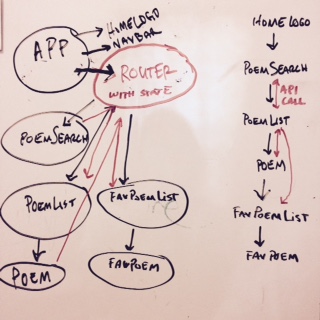 HOMELOGO
NAVBAR
APP
ROUTER
WITH STATE
POEMSEARCH
POEMLIST
FAVPOEMLIST
POEM
FAVPOEM
HOMELOGO
POEMSEARCH
API
CALL
POEMLIST
POEM
FAVPOEMLIST
FAVPOEM